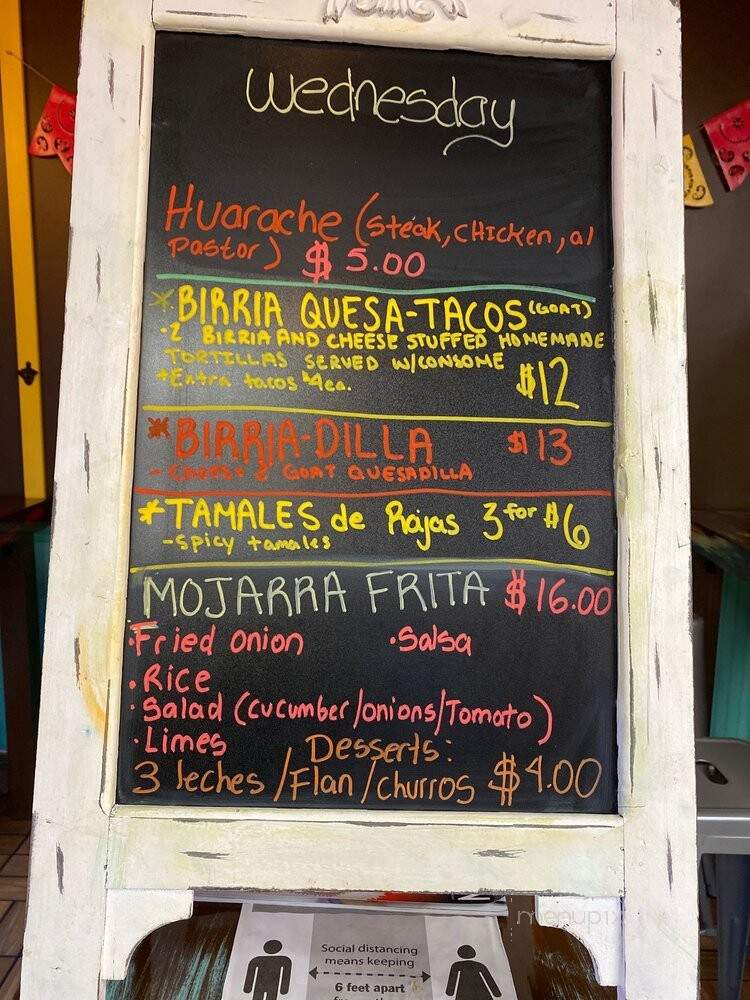 Wednesday
Huarache (steak, CHicken, al
Pastor) $ 5.00
*BIRRIA QUESA-TACOS (GOAT)
·2 BIRRIA AND CHEESE STUFFED HOMEMADE
TORTILLAS SERVED W/CONSOME
+Extra tacos $4ea.
$12
*BIRRIA-DILLA $13
- CHEESE & GOAT QUESADILLA
*TAMALES de Rajas 3 for $6
-spicy tamales
MOJARRA FRITA $16.00
·Fried onion ·Salsa
·Rice
·Salad (cucumber/onions/Tomato)
·Limes
Desserts:
3 leches /Flan /churros $4.00
Social distancing
means keeping
6 feet apart